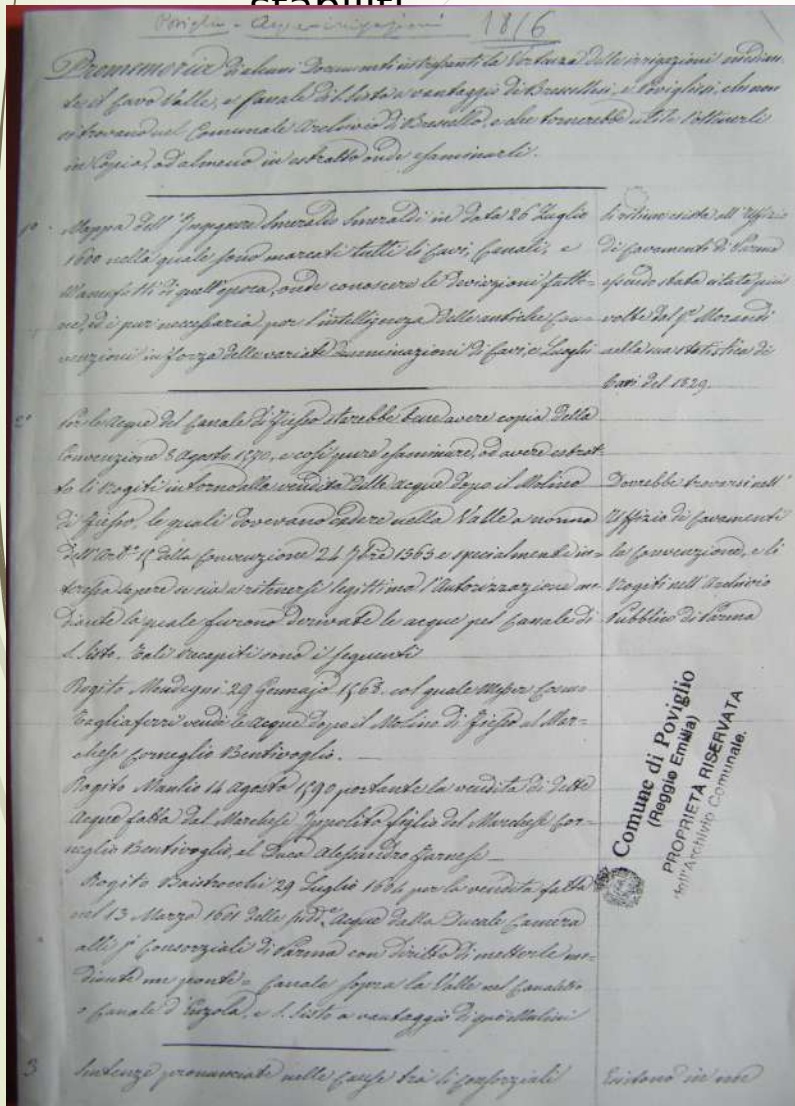 stabiliti
Poviglio - Acque irrigazioni 1816
Promemoria di alcuni Documenti interessanti la Vertenza delle irrigazioni median-
te il Cavo Valle, e Canale di S. Sisto a vantaggio di Brescellesi, e Povigliesi, che non
si trovano nel Comunale Archivio di Brescello, e che tornerebbe utile l'ottenerli
in Copia, od almeno in estratto onde esaminarli.
1° Mappa dell'Ingegnere Smeraldo Smeraldi in data 26 Luglio
1600 nella quale sono marcati tutti li Cavi, Canali, e
Manufatti di quell'epoca, onde conoscere le deviazioni fatte-
ne, ed è pur necessaria per l'intelligenza delle antiche Con-
venzioni in forza delle variate denominazioni di Cavi, e Luoghi
Si ritiene esista all'Uffizio
di Cavamenti di Parma
essendo stata citata più
volte dal Sr. Morandi
nella sua statistica di
Cavi del 1829.
2° Per le Acque del Canale di Giesso starebbe bene avere copia della
Convenzione 8 Agosto 1570, e così pure esaminare, od avere estrat-
to li Rogiti intorno alla vendita delle acque dopo il Molino
di Giesso, le quali dovevano cadere nella Valle a norma
dell'Art.° 15 della Convenzione 24 7bre 1565 e specialmente in-
teressa sapere se sia a ritenersi legittima l'Autorizzazione me-
diante la quale furono derivate le acque pel Canale di
S. Sisto. Tali recapiti sono i seguenti
Dovrebbe trovarsi nell'
Uffizio di Cavamenti
la Convenzione, e li
Rogiti nell'Archivio
Pubblico di Parma
Rogito Mendogni 29 Gennajo 1568. col quale Messer Cosmo
Tagliaferri vendè le acque dopo il Molino di Giesso al Mar-
chese Corneglio Bentivoglio.
Rogito Manlio 14 Agosto 1590 portante la vendita di dette
Acque fatta dal Marchese Ippolito figlio del Marchese Cor-
neglio Bentivoglio, al Duca Alessandro Farnese
Rogito Baistrocchi 29 Luglio 1604 per la vendita fatta
nel 13 Marzo 1601 delle sudd.e Acque dalla Ducale Camera
alli Sr. Consorziali di Parma con diritto di metterle me-
diante un ponte-Canale sopra la Valle nel Canaletto
o Canale d'Enzola, e S. Sisto a vantaggio di que' Molini
Comune di Poviglio
(Reggio Emilia)
PROPRIETÀ RISERVATA
dell'Archivio Comunale.
3 Sentenze pronunciate nelle Cause tra li Consorziali
Esistono in un